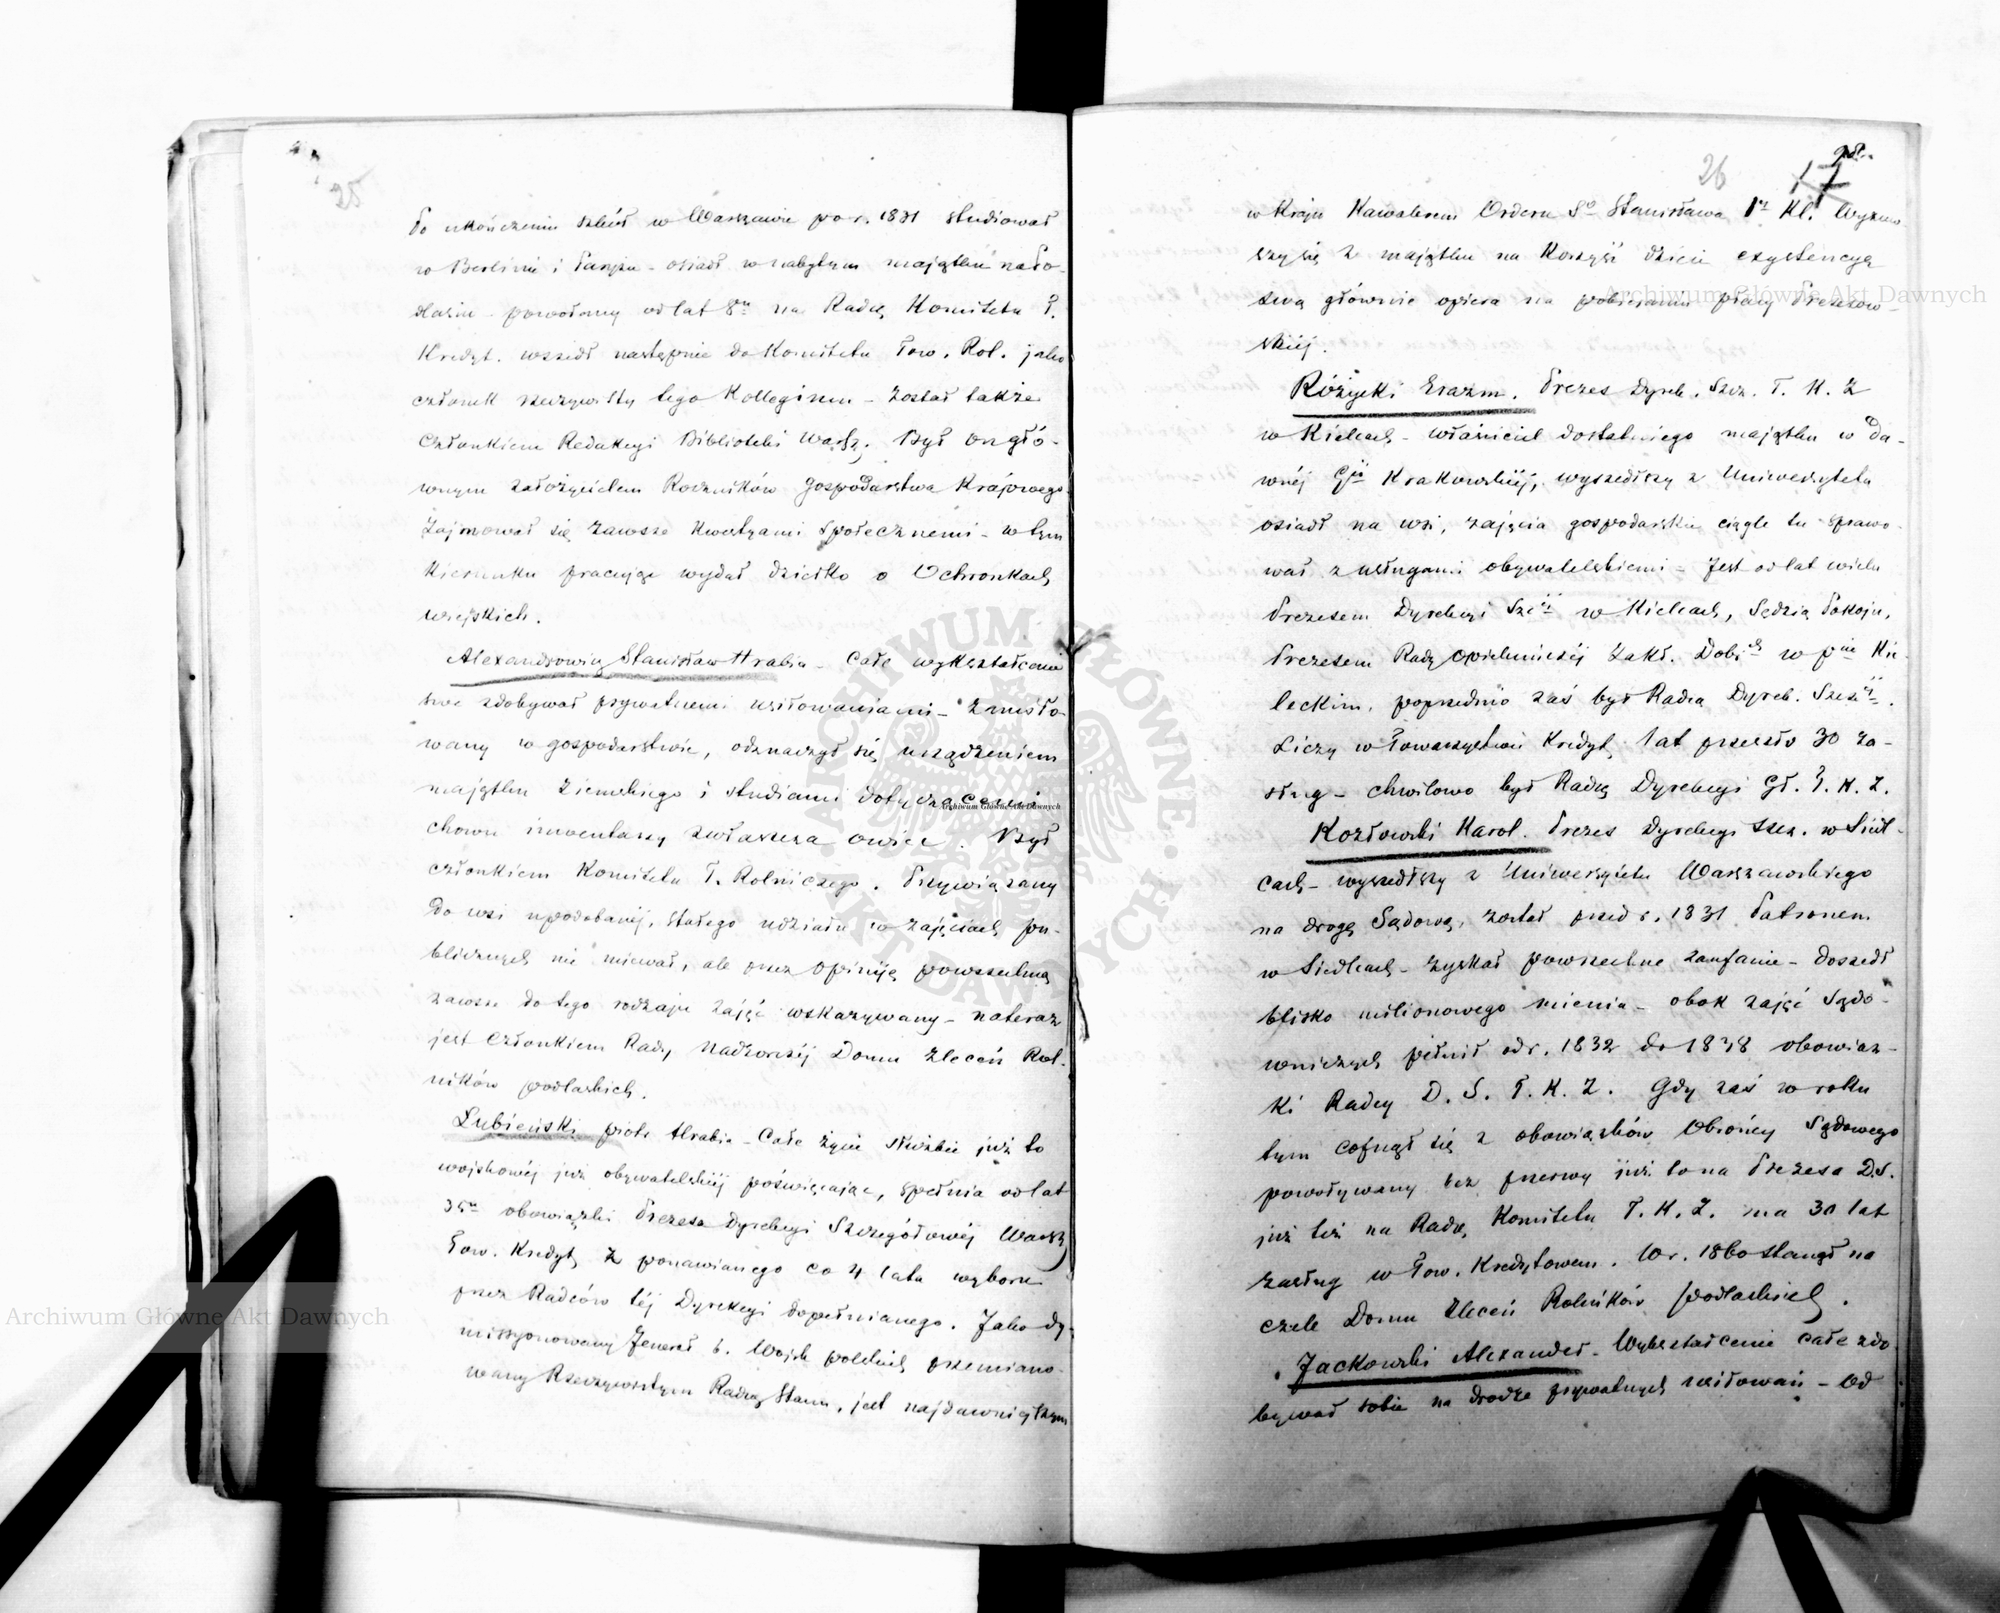 25
Po ukończeniu szkół w Warszawie po r. 1831 studiował
w Berlinie i Paryżu – osiadł w nabytym majątku na Po-
dlasiu – powołany od lat 8u na Radcę Komitetu T.
Kredyt. wszedł następnie do Komitetu Tow. Rol. jako
członek rzeczywisty tego Kollegium – został także
Członkiem Redakcyi Biblioteki Warsz. Był on głó-
wnym założycielem Roczników Gospodarstwa Krajowego.
Zajmował się zawsze kwestyami społecznemi – w tym
kierunku pracując wydał dziełko o Ochronkach
wiejskich.
Alexandrowicz Stanisław Hrabia – Całe wykształcenie
swe zdobywał prywatnemi usiłowaniami – Zamiło-
wany w gospodarstwie, odznaczył się urządzeniem
majątku Ziemskiego i studiami dotyczącemi
chowu inwentarzy zwłaszcza owiec. Był
członkiem Komitetu T. Rolniczego. Przywiązany
do wsi upodobaniej, stałego udziału w zajęciach pu-
blicznych nie miewał, ale przez opiniję powszechną
zawsze do tego rodzaju zajęć wskazywany – na teraz
jest Członkiem Rady Nadzorczéj Domu Zleceń Rol-
ników podlaskich.
Łubieński Piotr Hrabia – Całe życie służbie już to
wojskowéj już obywatelskiéj poświęcając, spełnia od lat
35u obowiązki Prezesa Dyrekcyi Szczegółowéj Warsz
Tow. Kredyt. Z ponawianego co 4 lata wyboru
przez Radców téj Dyrekcyi dopełnianego. Jako dy-
missyonowany Jenerał b. Wojsk polskich przemiano-
wany Rzeczywistym Radcą Stanu, jest najdawniejszym
26
17
w Kraju Kawalerem Orderu Sgo Stanisława 1ej Kl. Wyzuw-
szy się z majątku na korzyść dzieci exystencyą
swą głównie opiera na pobieraniu płacy Prezesow-
skiéj.
Różycki Erazm. Prezes Dyrek. Szcz. T. K. Z
w Kielcach – właściciel dostatniego majątku w da-
wnéj Gji Krakowskiéj, wyszedłszy z Uniwersytetu
osiadł na wsi, zajęcia gospodarskie ciągle tu sprawo-
wał z usługami obywatelskiemi – Jest od lat wielu
Prezesem Dyrekcyi Szcz w Kielcach, Sędzią Pokoju,
Prezesem Rady Opiekuńczéj Zakł. Dobrch w pcie Kie-
leckim, poprzednio zaś był Radcą Dyrek. Szcz.
Liczy w Towarzystwie Kredyt. lat przeszło 30 za-
sług – chwilowo był Radcą Dyrekcyi Gł. T. K. Z.
Kozłowski Karol. Prezes Dyrekcyi Szcz. w Siedl-
cach – wyszedłszy z Uniwersytetu Warszawskiego
na drogę Sądową, został przed r. 1831 Patronem
w Siedlcach – zyskał powszechne zaufanie – doszedł
blisko milionowego mienia – obok zajęć Sądo-
wniczych pełnił od r. 1832 do 1838 obowiąz-
ki Radcy D. S. T. K. Z. Gdy zaś w roku
tym cofnął się z obowiązków Obrońcy Sądowego
powoływany bez przerwy już to na Prezesa D.S.
już też na Radcę Komitetu T. K. Z. ma 30 lat
zasług w Tow. Kredytowem. W r. 1860 stanął na
czele Domu Zleceń Rolników podlaskich.
Jackowski Alexander – Wykształcenie całe zdo
bywał sobie na drodze prywatnych usiłowań – Od
Archiwum Główne Akt Dawnych
Archiwum Główne Akt Dawnych
Archiwum Główne Akt Dawnych
ARCHIWUM GŁÓWNE AKT DAWNYCH